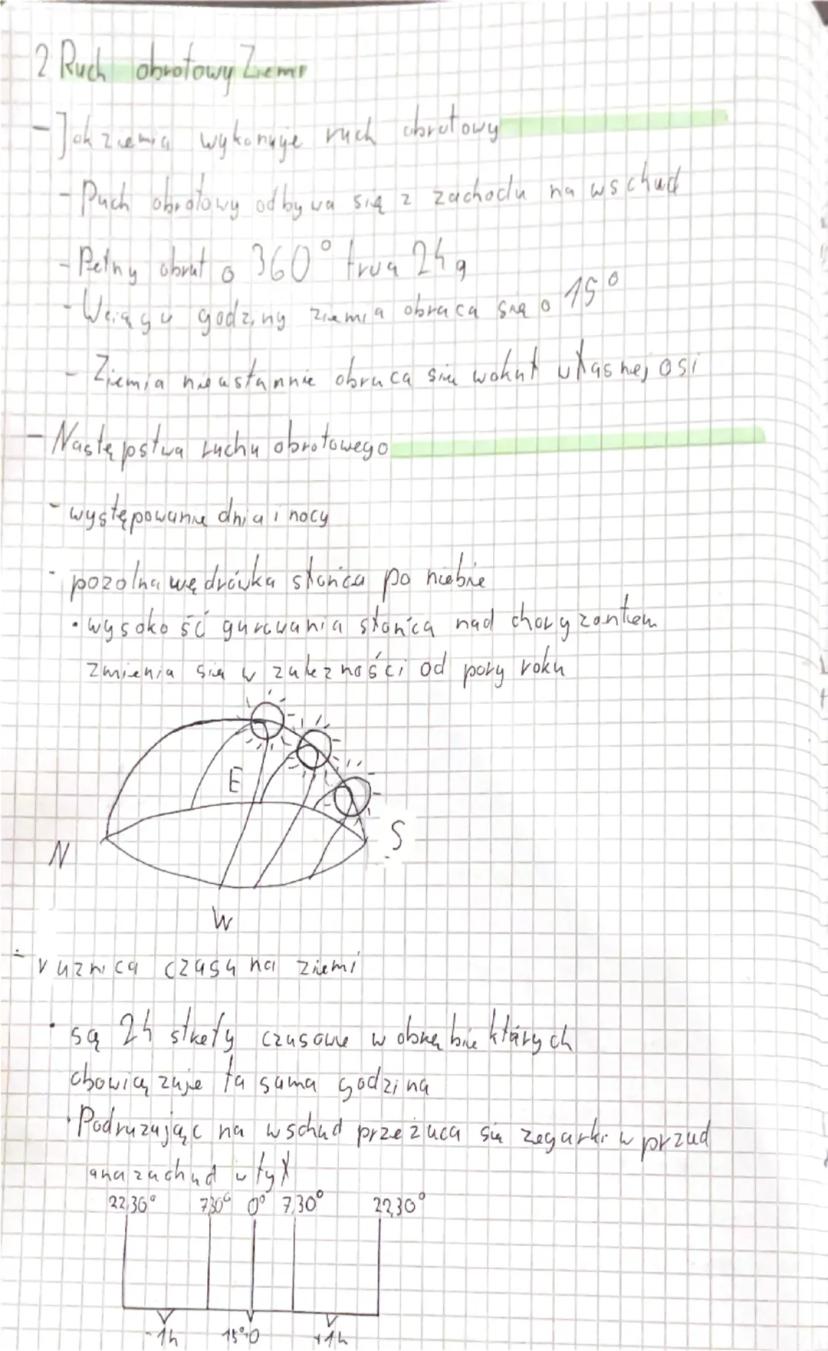 2 Ruch obrotowy Ziemi
- Jak ziemia wykonuje ruch obrotowy
- Ruch obrotowy odbywa się z zachodu na wschud
- Pełny obrut o 360° trwa 24 g
- Wciągu godziny ziemia obraca się o 15°
- Ziemia nieustannie obraca się wokuł własnej osi
- Następstwa ruchu obrotowego
- występowanie dnia i nocy
- pozolna wędrówka słońca po niebie
• wysokość gurowania słońca nad choryzontem
zmienia sie w zależności od pory roku
E
N
S
W
- ruznica czasu na ziemi
• są 24 strefy czasowe w obrębie których
obowiązuje ta sama godzina
• Podruzając na wschud przeżuca sie zegarki w przud
a na zachud w tył
22,30° 7,30° 0° 7,30° 22,30°
-1h 15° 0 +1h